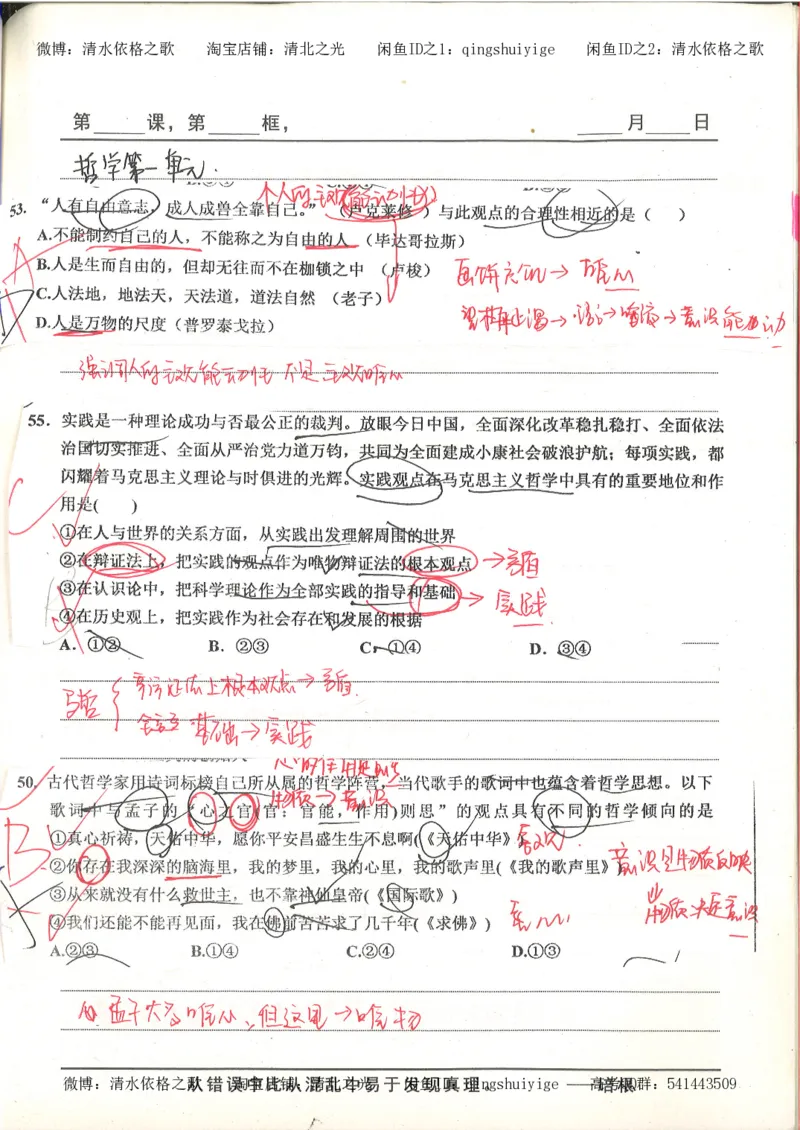 微博：清水依格之歌 淘宝店铺：清北之光 闲鱼ID之1：qingshuiyige 闲鱼ID之2：清水依格之歌
第____课，第____框， ____月____日
哲学第一单元.
个人的主观能动性
53. “人有自由意志，成人成兽全靠自己。”（卢克莱修）与此观点的合理性相近的是（ ）
A.不能制约自己的人，不能称之为自由的人（毕达哥拉斯）
B.人是生而自由的，但却无往而不在枷锁之中（卢梭）
画饼充饥→唯心
C.人法地，地法天，天法道，道法自然（老子）
D.人是万物的尺度（普罗泰戈拉）
强调人的主观能动性 不是主观唯心
55. 实践是一种理论成功与否最公正的裁判。放眼今日中国，全面深化改革稳扎稳打、全面依法
治国切实推进、全面从严治党力道万钧，共同为全面建成小康社会破浪护航；每项实践，都
闪耀着马克思主义理论与时俱进的光辉。实践观点在马克思主义哲学中具有的重要地位和作
用是( )
①在人与世界的关系方面，从实践出发理解周围的世界
②在辩证法上，把实践的观点作为唯物辩证法的根本观点 →矛盾
③在认识论中，把科学理论作为全部实践的指导和基础 →实践
④在历史观上，把实践作为社会存在和发展的根据
A. ①② B. ②③ C. ①④ D. ③④
马哲
辩证法上根本观点→矛盾.
基础→实践
50. 古代哲学家用诗词标榜自己所从属的哲学阵营，当代歌手的歌词中也蕴含着哲学思想。以下
歌词中与孟子的“心之官(官：官能，作用)则思”的观点具有不同的哲学倾向的是
①真心祈祷，天佑中华，愿你平安昌盛生生不息啊(《天佑中华》)
②你存在我深深的脑海里，我的梦里，我的心里，我的歌声里(《我的歌声里》)
意识是物质反映
③从来就没有什么救世主，也不靠神仙皇帝(《国际歌》)
物质决定意识
④我们还能不能再见面，我在佛前苦苦求了几千年(《求佛》)
A.②③ B.①④ C.②④ D.①③
孟子大多唯心，但这里→唯物
微博：清水依格之歌
从错误中比从混乱中易于发现真理。 ——培根
群：541443509